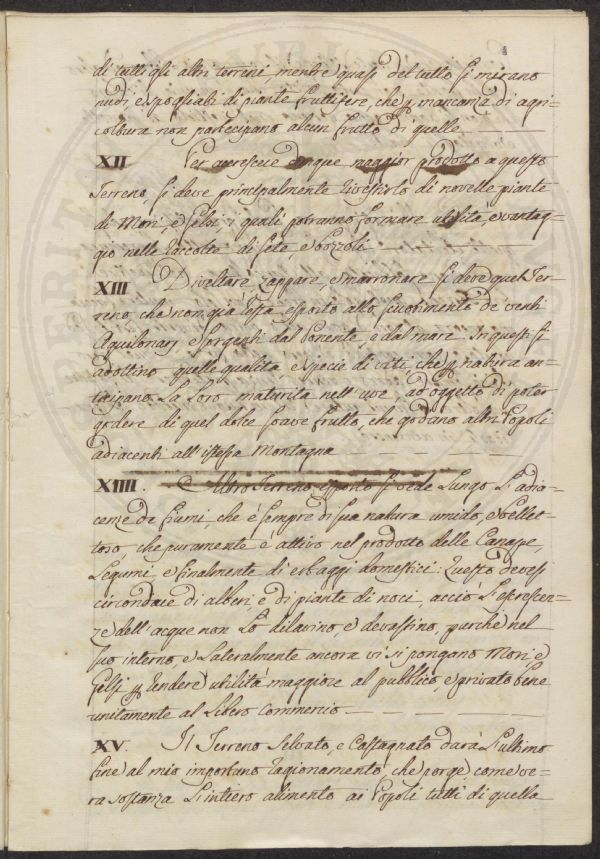 4
di tutti gli altri terreni mentre quasi del tutto si mirano
nudi, e spogliati di piante fruttifere, che p. mancanza di agri=
coltura non partecipano alcun frutto di quelle
XII Per accrescere dunque maggior prodotto a questo
Terreno, si deve principalmente rivestirlo di novelle piante
di Mori, e Gelsi, i quali potranno formare utilità, e vantag=
gio nelle raccolte di sete, e bozzoli
XIII Divettare, zappare, e marronare si deve quel Ter=
reno che non già resta esposto allo scuotimento de venti
Aquilonarj e sorgenti dal Ponente, e dal mare. In questi si
adottino quelle qualità e specie di viti, che p. natura an=
ticipano La Loro maturità nell'uve, ad oggetto di poter
godere di quel dolce soave frutto, che godano altri Popoli
adiacenti all'istessa Montagna
XIIII. Altro Terreno esposto si vede Lungo L'adia=
cenze de fiumi, che è sempre di sua natura umido, e bellet=
toso, che puramente è attivo nel prodotto delle Canape,
Legumi, e finalmente di erbaggi domestici: Questo devesi
circondare di alberi, e di piante di noci, acciò L'escrescen=
ze dell'acque non Lo dilavino, e devastino, purche nel
suo interno, e Lateralmente ancora vi si pongano Mori, e
Gelsi p. rendere utilità maggiore al pubblico, e privato bene
unitamente al Libero commercio
XV. Il Terreno Selvato, e Castagnato darà L'ultimo
fine al mio importano ragionamento, che porge, come ve=
ra sostanza L'intiero alimento ai Popoli tutti di quella